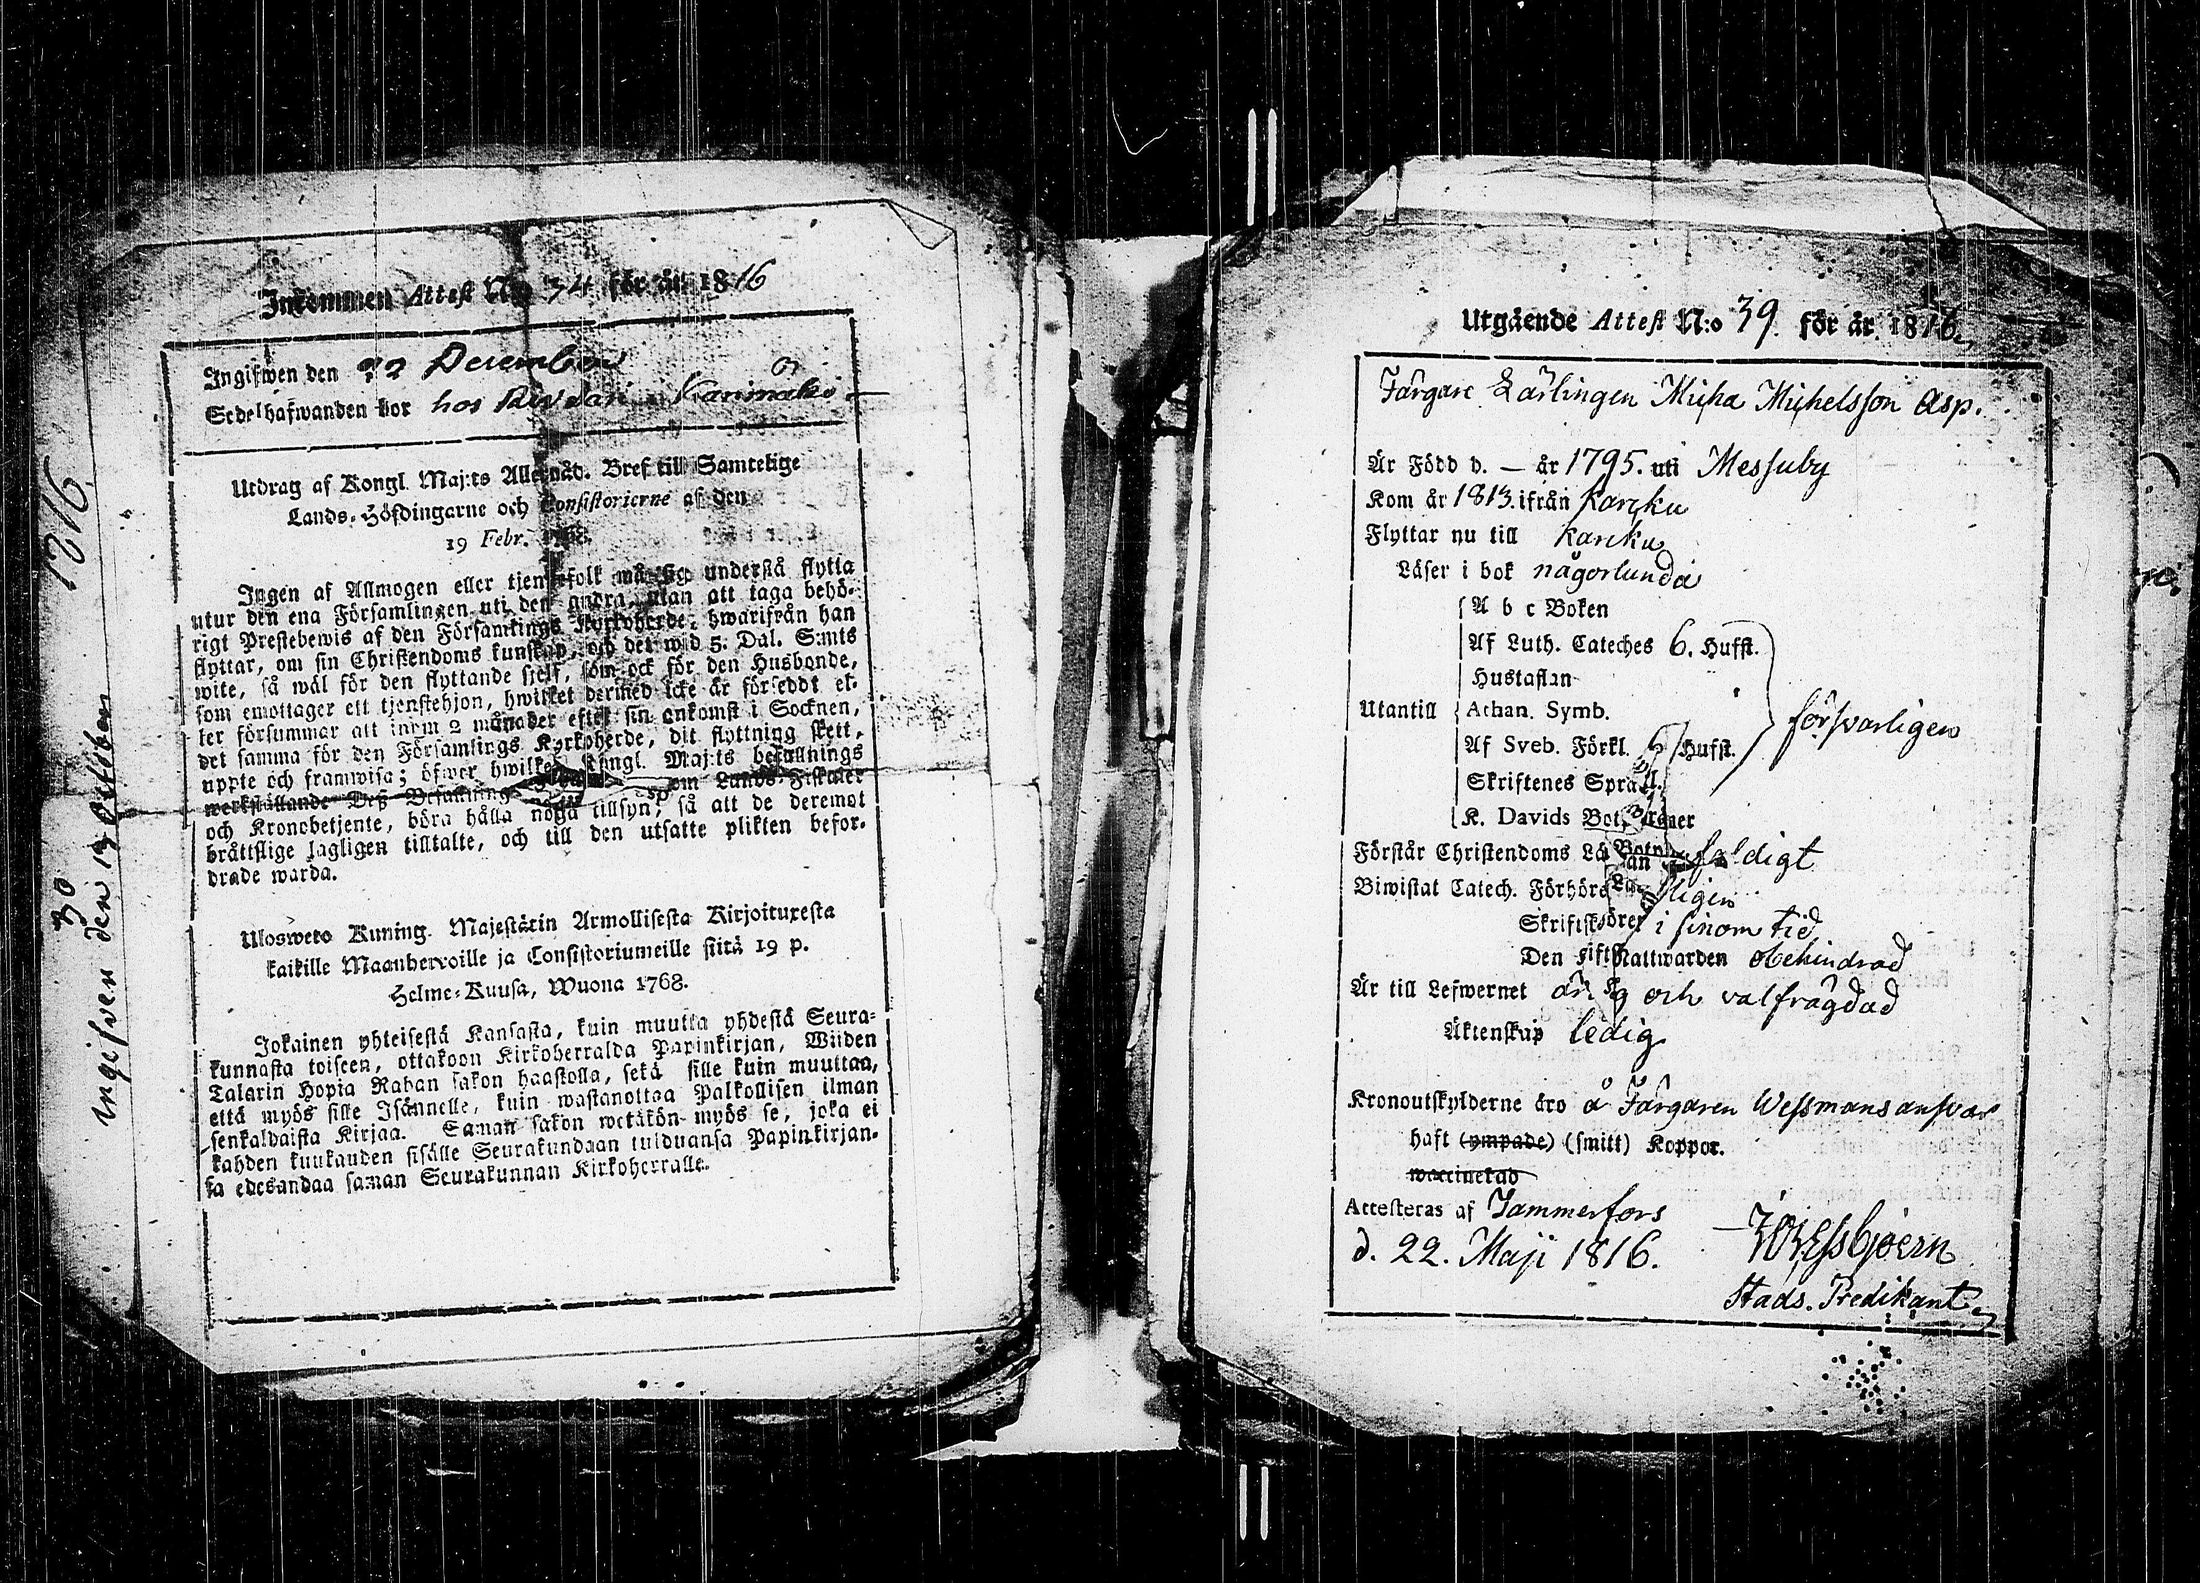 Inkommen Attest N:o 34 för år 1816
Ingifwen den 22 December
Sedelhafwanden bor hos
Utdrag af Kongl. Maj:ts Allernåd. Bref till Samtelige
Lands-Höfdingarne och Consistorierne af den
19 Febr. 1768.
Ingen af Allmogen eller tjenstefolk må sig understå flytta
utur den ena Församlingen uti den andra, utan att taga behö-
rigt Prestebewis af den Församlings Kyrkoherde, hwarifrån han
flyttar, om sin Christendoms kunskap, och det wid 5. Dal. S:mts
wite, så wäl för den flyttande sjelf, som ock för den Husbonde,
som emottager ett tjenstehjon, hwilket dermed icke är försedt el-
ler försummar att inom 2 månader efter sin ankomst i Socknen,
det samma för den Församlings Kyrkoherde, dit flyttning skett,
uppte och framwisa; öfwer hwilket Kongl. Maj:ts befallnings
werkställande Deß Befallning som Lands-Fiskaler
och Kronobetjente, böra hålla noga tillsyn, så att de deremot
bråttslige lagligen tilltalte, och till den utsatte plikten befor-
drade warda.
Ulosweto Kuning. Majestätin Armollisesta Kirjoituxesta
kaikille Maanherroille ja Consistoriumeille siitä 19 p.
Helme-Kuusa, Wuona 1768.
Jokainen yhteisestä Kansasta, kuin muutta yhdestä Seura-
kunnasta toiseen, ottakoon Kirkoherralda Papinkirjan, Wiiden
Talarin Hopia Rahan sakon haastolla, sekä sille kuin muuttaa,
että myös sille Isännelle, kuin wastanottaa Palkollisen ilman
senkaldaista Kirjaa. Saman sakon wetäkön myös se, joka ei
kahden kuukauden sisälle Seurakundaan tulduansa Papinkirjan-
sa edesandaa saman Seurakunnan Kirkoherralle.
1816
30
Ingifven den 13 October
Utgående Attest N:o 39. för år 1816
Färgare Lärlingen Micha Michelsson Asp.
Är Född d. — år 1795. uti Messuby
Kom år 1813. ifrån Karcku
Flyttar nu till Karcku
Läser i bok någorlunda
A b c Boken
Af Luth. Cateches 6. Hufst.
Hustaflan
Utantill Athan. Symb.
försvarligen
Af Sveb. Förkl. 6 Hufst.
Skriftenes Språk
K. Davids Bot
Förstår Christendoms Lä faldigt
Biwistat Catech. Förhör ligen
Skriftskolor i sinom tid
Den sist Nattwarden obehindrad
Är till Lefwernet ärlig och välfrägdad
Äktenskap ledig
Kronoutskylderne äro å Färgaren Wessmans ansvar
haft (ympade) (smitt) Koppor.
waccinerad
Attesteras af Tammerfors
d. 22. Maji 1816.
Stads. Predikant